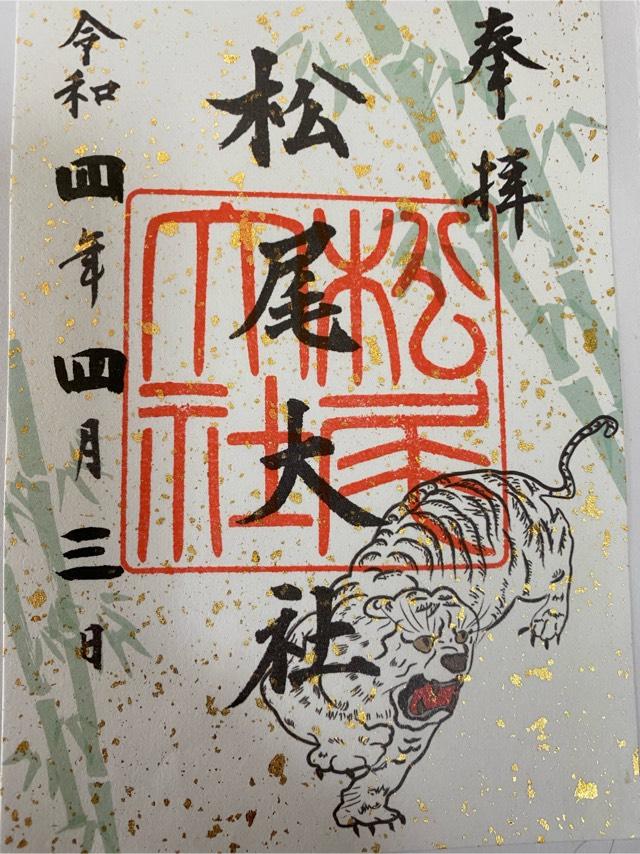 奉拝
松尾大社
松尾大社
令和四年四月三日